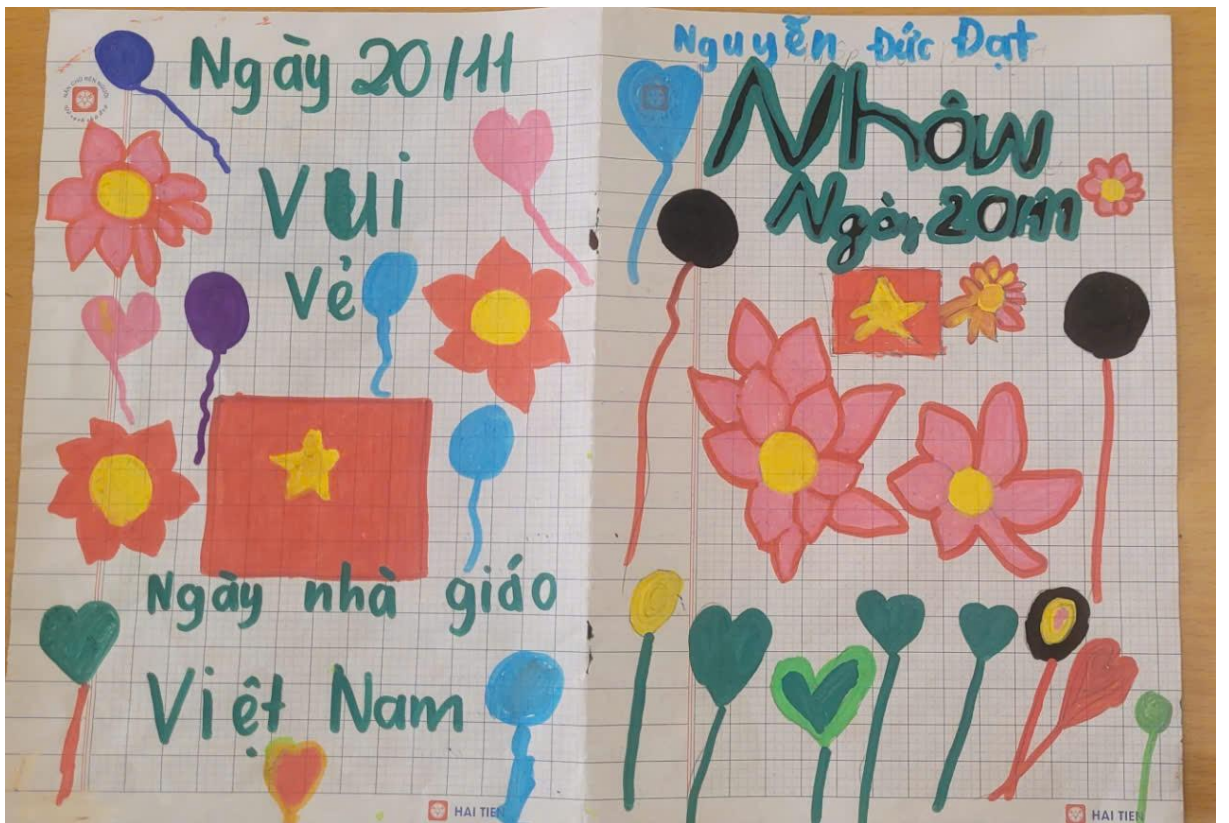 Ngày 20/11
Vui
vẻ
Ngày nhà giáo
Việt Nam
HAI TIEN
Nguyễn Đức Đạt
Nhôw
Ngày 20/11
HAI TIEN